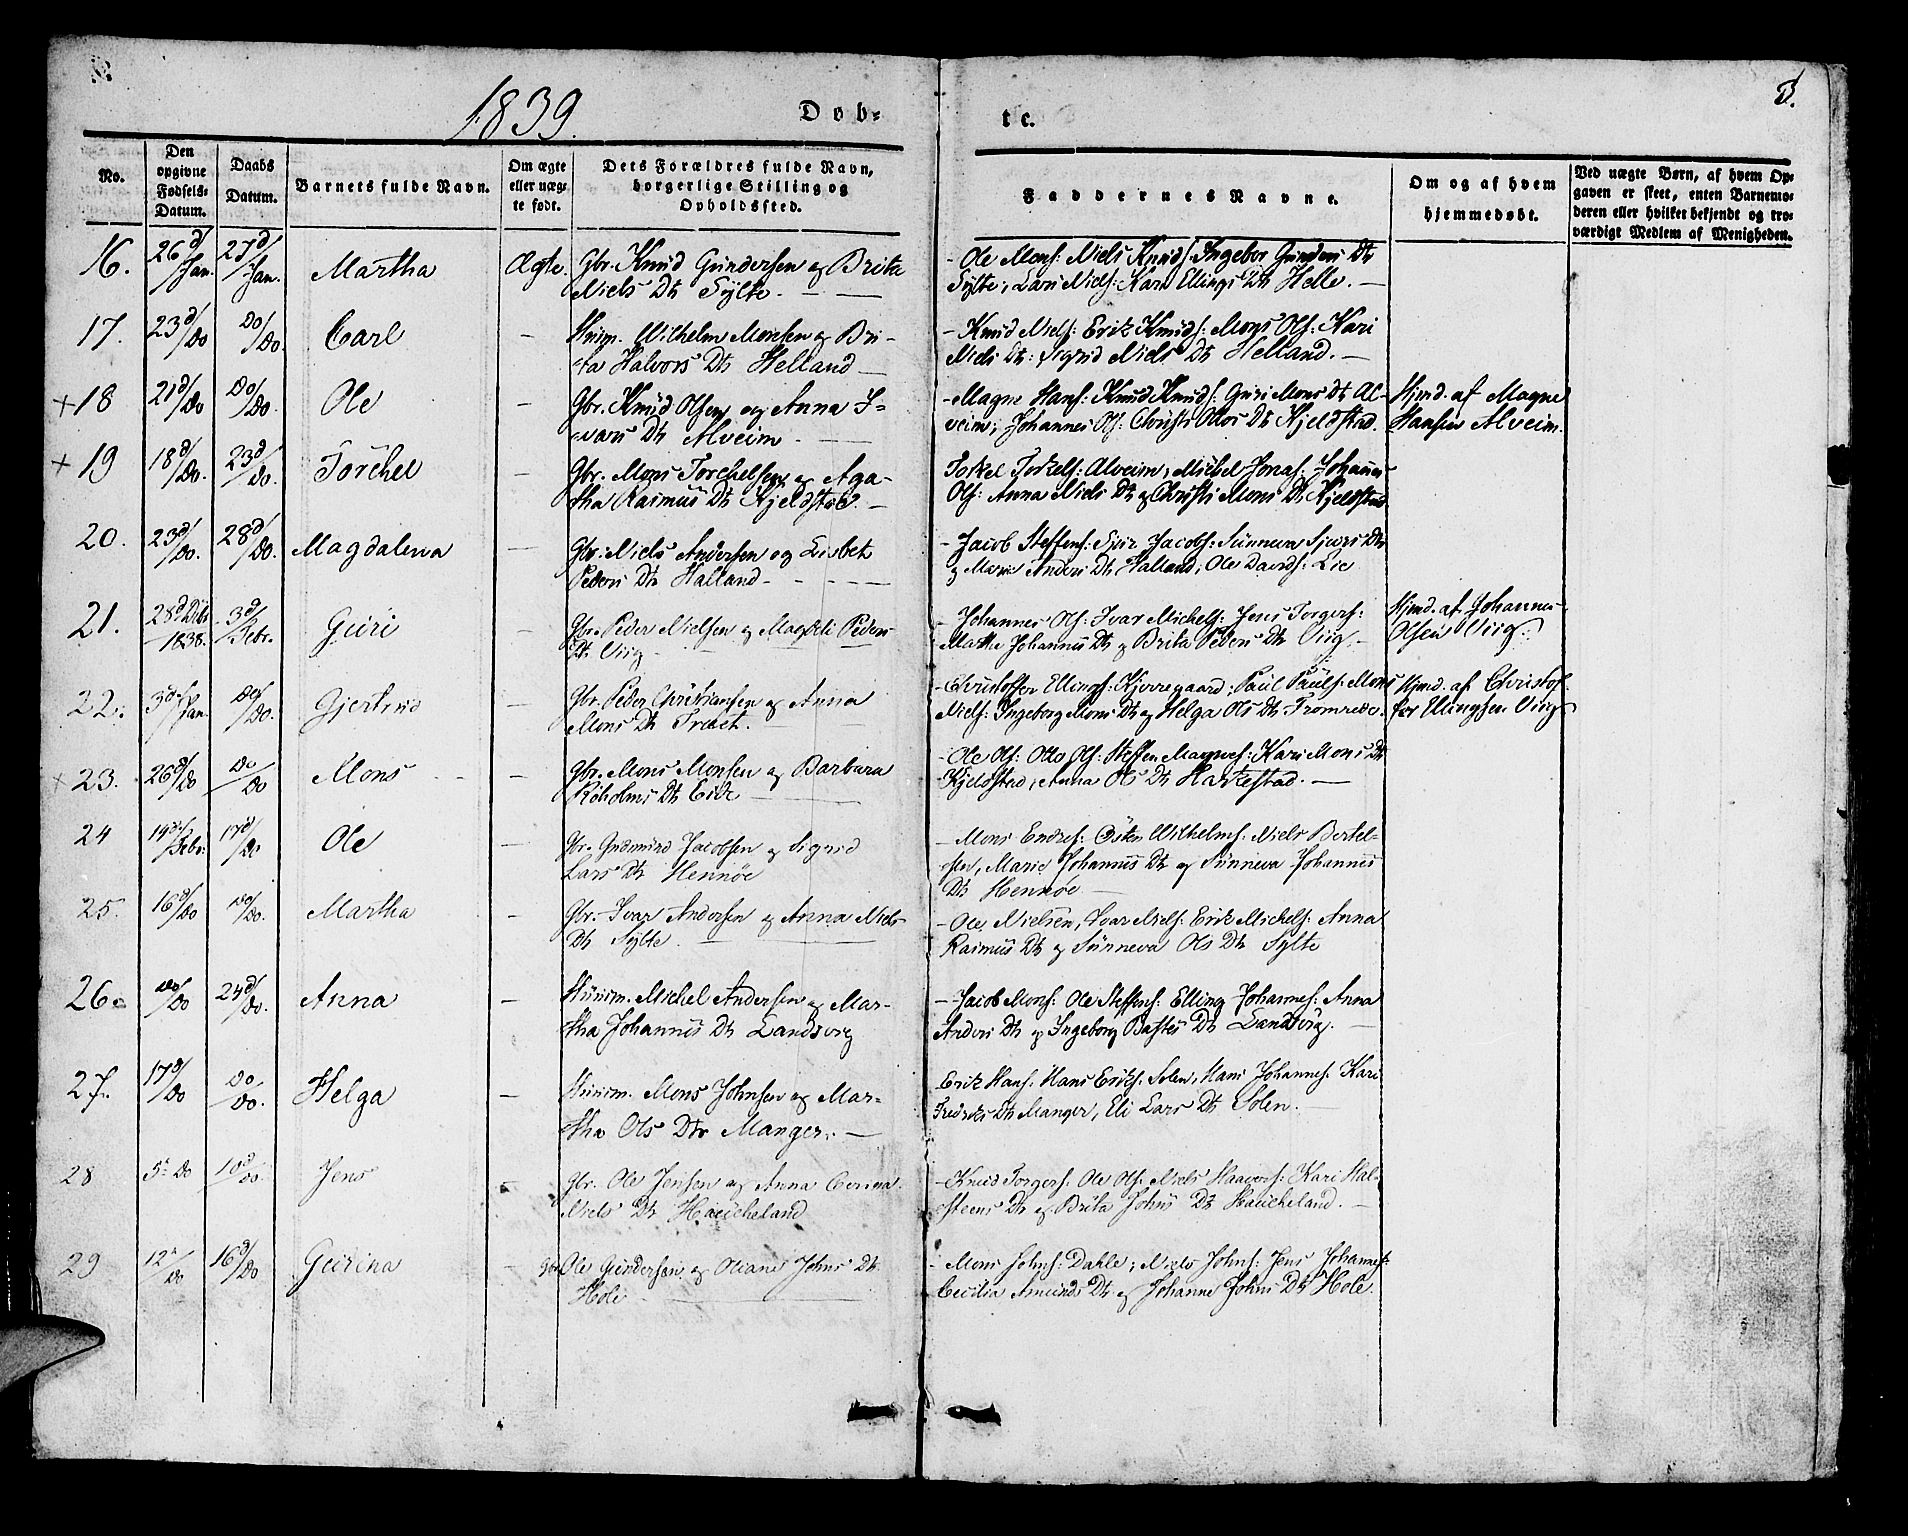 1839.
Døb-
te.
3.
No.
Den opgivne Fødsels-Datum.
Daabs Datum.
Barnets fulde Navn.
Om ægte eller uægte født.
Dets Forældres fulde Navn, borgerlige Stilling og Opholdssted.
Faddernes Navne.
Om og af hvem hjemmedøbt.
Ved uægte Børn, af hvem Opgaven er skeet, enten Barnemoderen eller hvilket bekjendt og troværdigt Medlem af Menigheden.
16. 26d/Jan. 27d/Jan. Martha Ægte. Gbr. Knud Gundersen og Brita
Niels Dtr Sylte. — —
- Ole Mons: Niels Knuds: Ingebor Gunders Dtr
Sylte; Lars Niels: Kari Ellings Dtr Helle. —
17. 23d/Do Do/Do. Carl — Huusm. Wilhelm Monsen og Bri-
ta Halvors Dtr Helland —
- Knud Niels: Erik Knuds: Mons Ols: Kari
Niels Dtr: Sigrid Niels Dtr Helland. —
+ 18 21d/Do Do/Do. Ole — Gbr. Knud Olsen og Anna I-
vars Dtr Alveim. —
- Magne Hans: Knud Knuds: Guri Mons Dtr Al-
veim; Johannes Ols: Christi Ottos Dtr Kjeldstad.
Hjmd. af Magne
Hansen Alveim.
+ 19 18d/Do. 23d/Do. Torchel — Gbr. Mons Torchelsen og Aga-
tha Rasmus Dtr Kjeldstad. —
Torkel Torkels: Alveim; Michel Jonas: Johannes
Ols: Anna Niels Dtr og Christi Mons Dtr Kjeldstad
20. 23d/Do. 28d/Do. Magdalena — Gbr. Niels Andersen og Lisbet
Peders Dtr Halland - - - —
- Jacob Steffens: Sjur Jacobs: Sünneva Sjurs Dtr
og Marie Anders Dtr Halland; Ole Davids: Lie
21. 28d Dcbr/1838. 3d/Febr. Guri — Gbr. Peder Nielsen og Magdeli Peders
Dt. Virg — — —
- Johannes Ols: Ivar Michels: Jens Torgers:
Marthe Johannes Dtr og Brita Peders Dtr Virg. —
Hjmd. af Johannes
Olsen Virg:
22. 3d/Jan. Do/Do. Gjertrud — Gbr. Peder Christiansen og Anna
Mons Dtr Træet. —
- Christoffer Ellings: Kjerregaard; Paul Pauls: Mons
Niels: Ingeborg Mons Dtr og Helga Ols Dtr Fromrede.
Hjmd. af Christof-
fer Ellingsen Virg
+ 23. 26d/Do Do/Do Mons — Gbr. Mons Monsen og Barbara
Røholms Dtr Eide —
- Ole Ols: Otto Ols: Steffen Magnes: Kari Mons Dtr
Kjeldstad, Anna Ols Dtr Harkestad. —
24 14d/Febr. 17d/Do Ole — Gbr. Gudmund Jacobsen og Sigrid
Lars Dtr Hennøe
- Mons Endres: Østen Wilhelms: Niels Bertel-
sen, Marie Johannes Dtr og Sünneva Johannes
Dtr Hennøe —
25. 16d/Do Do/Do. Martha — Gbr. Ivar Andersen og Anna Niels
Dtr Sylte. —
- Ole Nielsen, Ivar Niels: Erik Michels: Anna
Rasmus Dtr og Sünneva Ols Dtr Sylte
26. Do/Do 24d/Do. Anna — Huusm. Michel Andersen og Mar-
tha Johannes Dtr Landsvig
- Jacob Mons: Ole Steffens: Elling Johannes: Anna
Anders Dtr og Ingeborg Bastes Dtr Landsvig. —
27. 17d/Do Do/Do. Helga — Huusm. Mons Johnsen og Mar-
tha Ols Dtr Manger. —
Erik Hans: Hans Eriks: Solen, Hans Johannes: Kari
Fredriks Dtr Manger, Eli Lars Dtr Solen. —
28 5te Do 10d/Do. Jens — Gbr. Ole Jensen og Anna Cerina
Niels Dtr Haucheland
- Knud Torgers: Ole Ols: Niels Haavors: Kari Hal-
steens Dtr og Brita Johns Dtr Haucheland. —
29 12te/Do 16d/Do Gurina — Gbr. Ole Gundersen og Oliane Johns Dtr
Hole —
- Mons Johns: Dahle; Niels Johns: Jens Johannes:
Cecilia Amunds Dtr og Johanne Johns Dtr Hole.